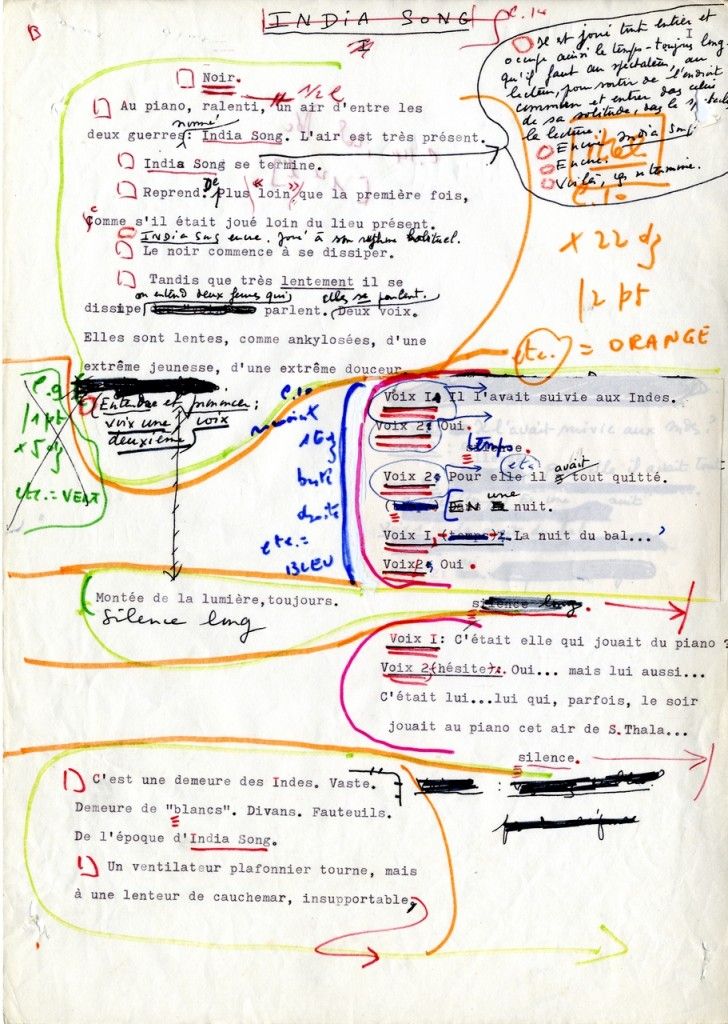 B
INDIA SONG
I
c.10
Il est joué tout entier et
occupe ainsi le temps - toujours long -
qu'il faut au spectateur, au
lecteur, pour sortir de l'endroit
commun et entrer dans celui
de sa solitude, dans le
la lecture.
Encore India Song
Encore.
Voilà, ça se termine.
Noir.
Au piano, ralenti, un air d'entre les
nommé
deux guerres: India Song. L'air est très présent.
India Song se termine.
Reprend. De Plus "loin" que la première fois,
comme s'il était joué loin du lieu présent.
INDIA Song encore. joué à son rythme habituel.
Le noir commence à se dissiper.
Tandis que très lentement il se
on entend deux femmes qui elles se parlent.
dissipe parlent. Deux voix.
Elles sont lentes, comme ankylosées, d'une
extrême jeunesse, d'une extrême douceur
x 22 dz
12 pt
etc. = ORANGE
c.9
11 pt
x 5 dz
etc. = VERT
voix une
deuxième voix
c.10
droite
etc. =
BLEU
Voix I. Il l'avait suivie aux Indes.
Voix 2: Oui.
temps.
silence.
Voix 2: Pour elle il avait tout quitté.
EN une nuit.
Voix I (temps): La nuit du bal...
Voix 2: Oui.
Montée de la lumière, toujours.
Silence long
silence long.
Voix I: C'était elle qui jouait du piano ?
Voix 2 (hésite): Oui... mais lui aussi...
C'était lui...lui qui, parfois, le soir
jouait au piano cet air de S.Thala...
silence.
C'est une demeure des Indes. Vaste.
Demeure de "blancs". Divans. Fauteuils.
De l'époque d'India Song.
Un ventilateur plafonnier tourne, mais
à une lenteur de cauchemar, insupportable,